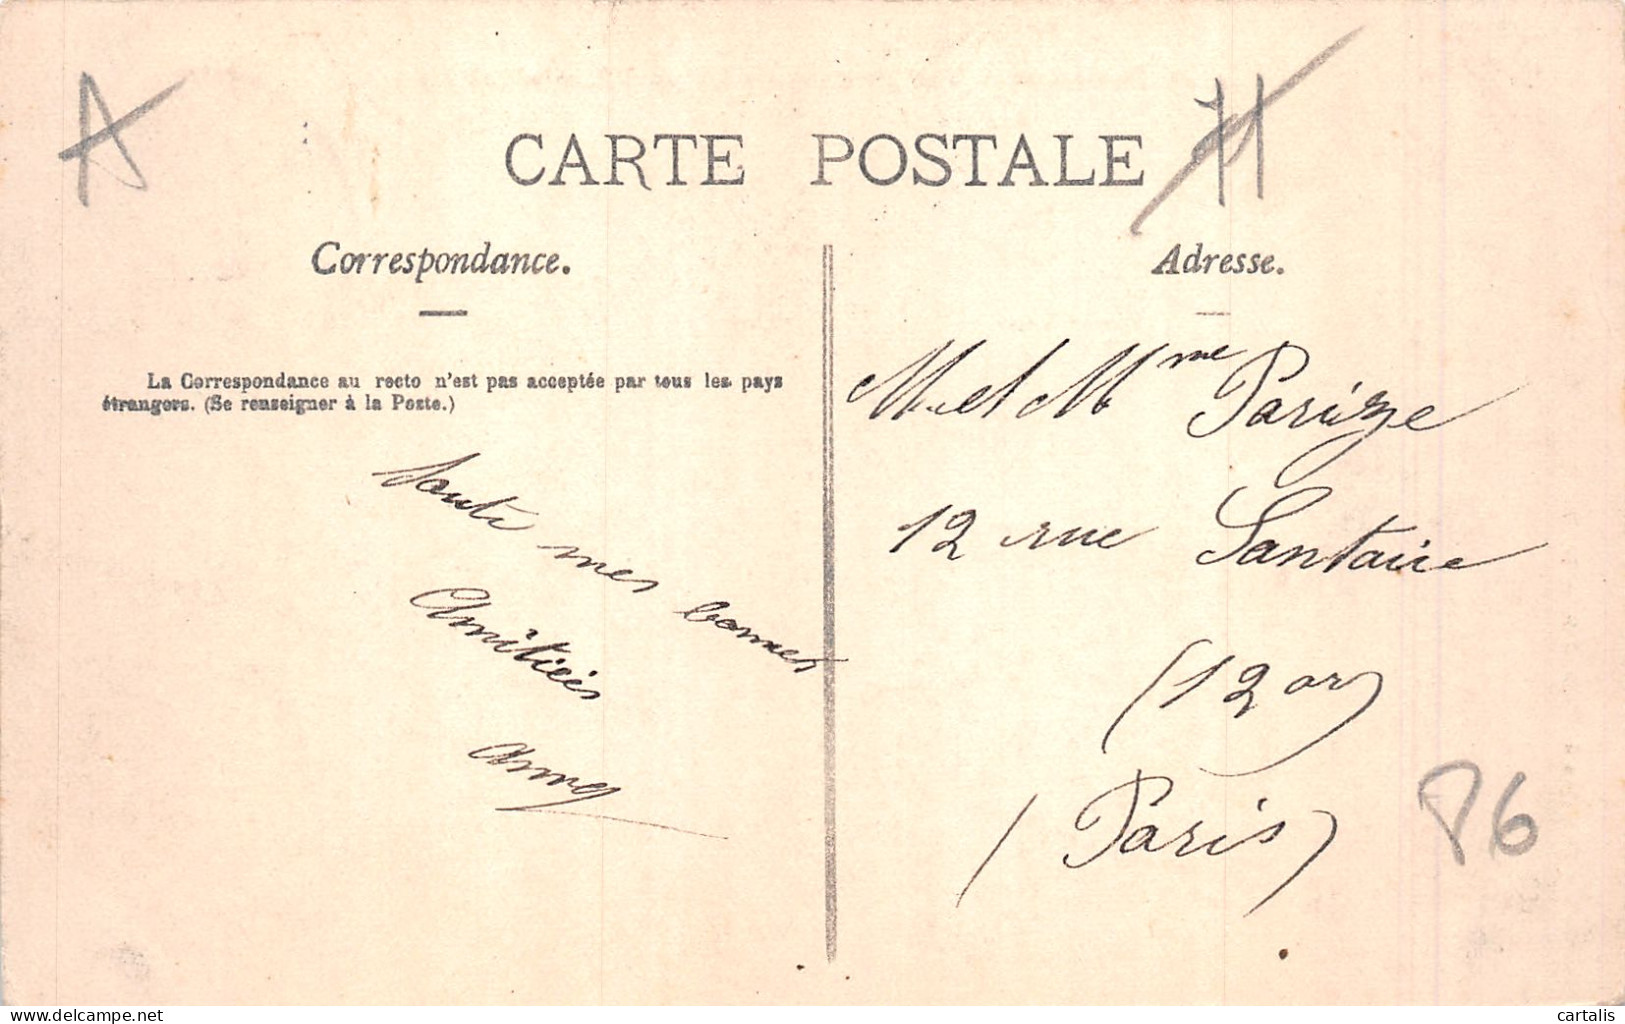 A
CARTE POSTALE
71
Correspondance.
Adresse.
La Correspondance au recto n'est pas acceptée par tous les pays
étrangers. (Se renseigner à la Poste.)
M. et Mme Parize
12 rue Santaire
(12 ar)
(Paris)
mes bonnes
Amitiées
P6
delcampe.net
cartalis